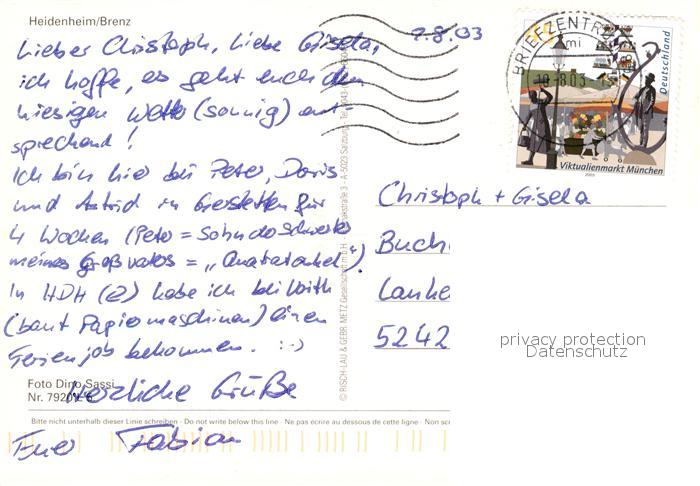 Heidenheim/Brenz
7.8.03
Lieber Christoph, Liebe Gisela,
ich hoffe, es geht euch dem
hiesigen Wetter (sonnig) ent
sprechend!
Ich bin hier bei Peter, Doris
und Astrid in Gerstetten für
4 Wochen (Peter = Sohn der Schwester
meines Großvaters =
In HDH (2) habe ich bei Voith
(baut Papiermaschinen) einen
Ferienjob bekommen. :-)
Herzliche Grüße
Euer Fabian
Foto Dino Sassi
Nr. 7920
Bitte nicht unterhalb dieser Linie schreiben · Do not write below this line · Ne pas écrire au dessous de cette ligne · Non sc
© RISCH-LAU & GEBR. METZ Gesellschaft m.b.H.
BRIEFZENTR
Deutschland
Viktualienmarkt München
2003
Christoph + Gisela
Buch
Lanke
5242
privacy protection
Datenschutz